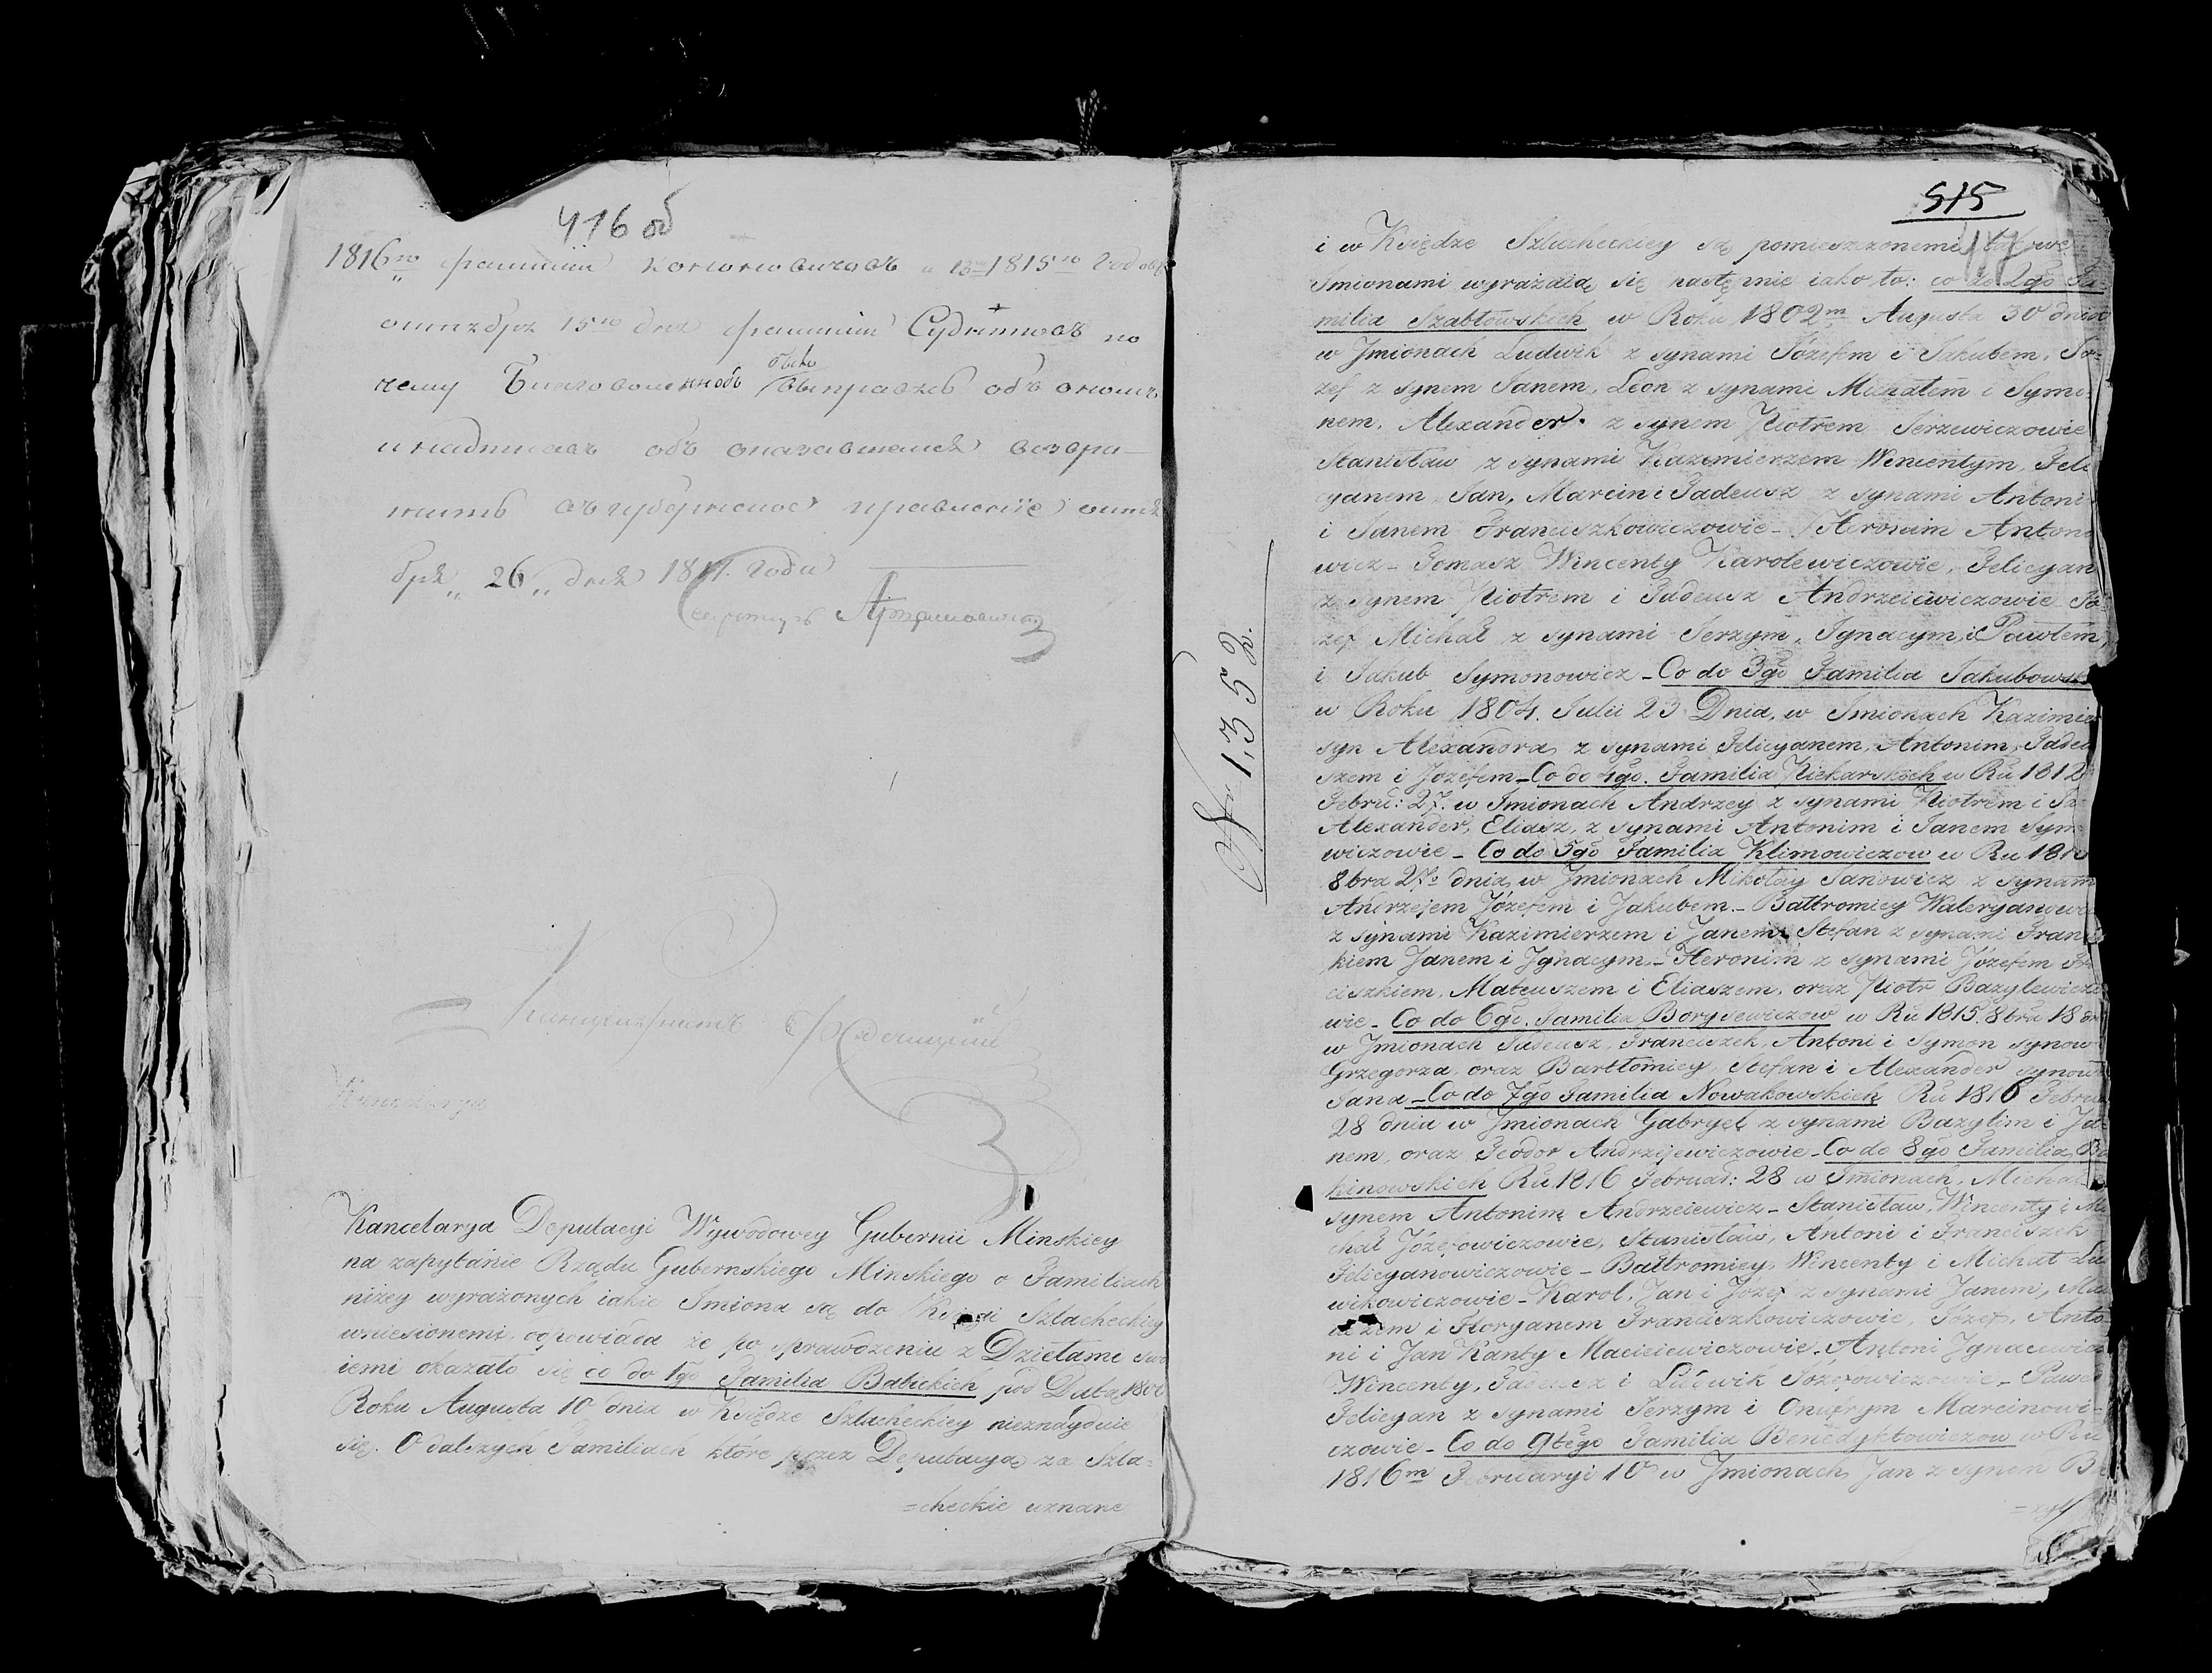 416 об
1816го фамилии и 13го 1815го годовъ
октября 15го дня фамилии Судниковъ по
чему Благоволено было выправясь объ ономъ
и надписавъ объ оказавшемся возвра-
тить въ губернское правление октя
бря „26„ дня 1817. года
Секретарь
Канцеляристъ
Kancelarya
Kancelarya Deputacyi Wywodowey Gubernii Minskiey
na zapytanie Rządu Gubernskiego Minskiego o Familiach
niżey wyrażonych iakie Imiona są do Księgi Szlacheckiey
wniesionemi, odpowiada że po sprawdzeniu z Dziełami swo
iemi okazało się co do 1go Familia Babickich pod Datą 180
Roku Augusta 10 dnia w Księdze Szlacheckiey nieznayduie
się. O dalszych Familiach które przez Deputacyą za Szla=
=checkie uznane
515
417
i w Księdze Szlacheckiey są pomieszczonemi, takowe
Imionami wyrażaią się następnie iako to: co do 2go Fa-
milia Szabłowskich w Roku 1802m Augusta 30 dnia
w Jmionach Ludwik z synami Józefem i Jakubem, Jó-
zef z synem Janem, Leon z synami Michałem i Symo-
nem, Alexander z synem Piotrem Jerzewiczowie
Stanisław z synami Kazimierzem Wincentym, Feli
cyanem, Jan, Marcin i Tadeusz z synami Antoni-
i Janem Franciszkowiczowie - Heronim Antono
wicz - Tomasz Wincenty Karolewiczowie, Felicyan
z synem Piotrem i Tadeusz Andrzeiewiczowie Jó
zef Michał z synami Jerzym, Ignacym, i Pawłem
i Jakub Symonowicz - Co do 3go Familia Jakubowsk
w Roku 1804. Julii 23 Dnia, w Imionach Kazimie
syn Alexandra z synami Felicyanem, Antonim, Tadeu
szem i Józefem - Co do 4go. Familia Piekarskich w Ru 1812
Febru: 27. w Imionach Andrzey z synami Piotrem i Ja
Alexander, Eliasz, z synami Antonim i Janem Sym
wiczowie - Co do 5go Familia Klimowiczow w Ru 181
8bra 27o dnia, w Jmionach Mikołay Janowicz z synam
Andrzejem Józefem i Jakubem. - Bałtromiey Waleryanowi
z synami Kazimierzem i Janem, Stefan z synami Franci
kiem Janem i Jgnacym. - Heronim z synami Józefem Fra
ciszkiem, Mateuszem i Eliaszem, oraz Piotr Bazylewiczo
wie - Co do 6go. Familia Borysewiczow w Ru 1815. 8bra 18
w Jmionach Tadeusz, Franciszek, Antoni i Symon synow
Grzegorza, oraz Bartłomiey, Stefan i Alexander synow
Jana - Co do 7go Familia Nowakowskich Ru 1816 Februa
28 dnia w Jmionach Gabryel z synami Bazylim i Ja-
nem, oraz Teodor Andrzejewiczowie - Co do 8go Familia, B
kinowskich Ru 1816 Februar: 28 w Imionach, Michał
synem Antonim Andrzeiewicz - Stanisław, Wincenty i Mi
chał Józefowiczowie, Stanisław, Antoni i Franciszek
Felicyanowiczowie - Bałtromiey Wincenty i Michał Lu
wikowiczowie - Karol, Jan i Józef z synami Janem, Ma
uszem i Floryanem Franciszkowiczowie, Józef, Anto
ni i Jan Kanty Macieiewiczowie. Antoni Jgnacewicz
Wincenty, Tadeusz i Ludwik Józefowiczowie - Paweł
Felicyan z synami Jerzym i Onufrym Marcinowi-
czowie - Co do 9tego Familia Benedyktowiczow w Ru
1816m Februaryi 10 w Jmionach, Jan z synem Ba
=zyl
No 1,352.